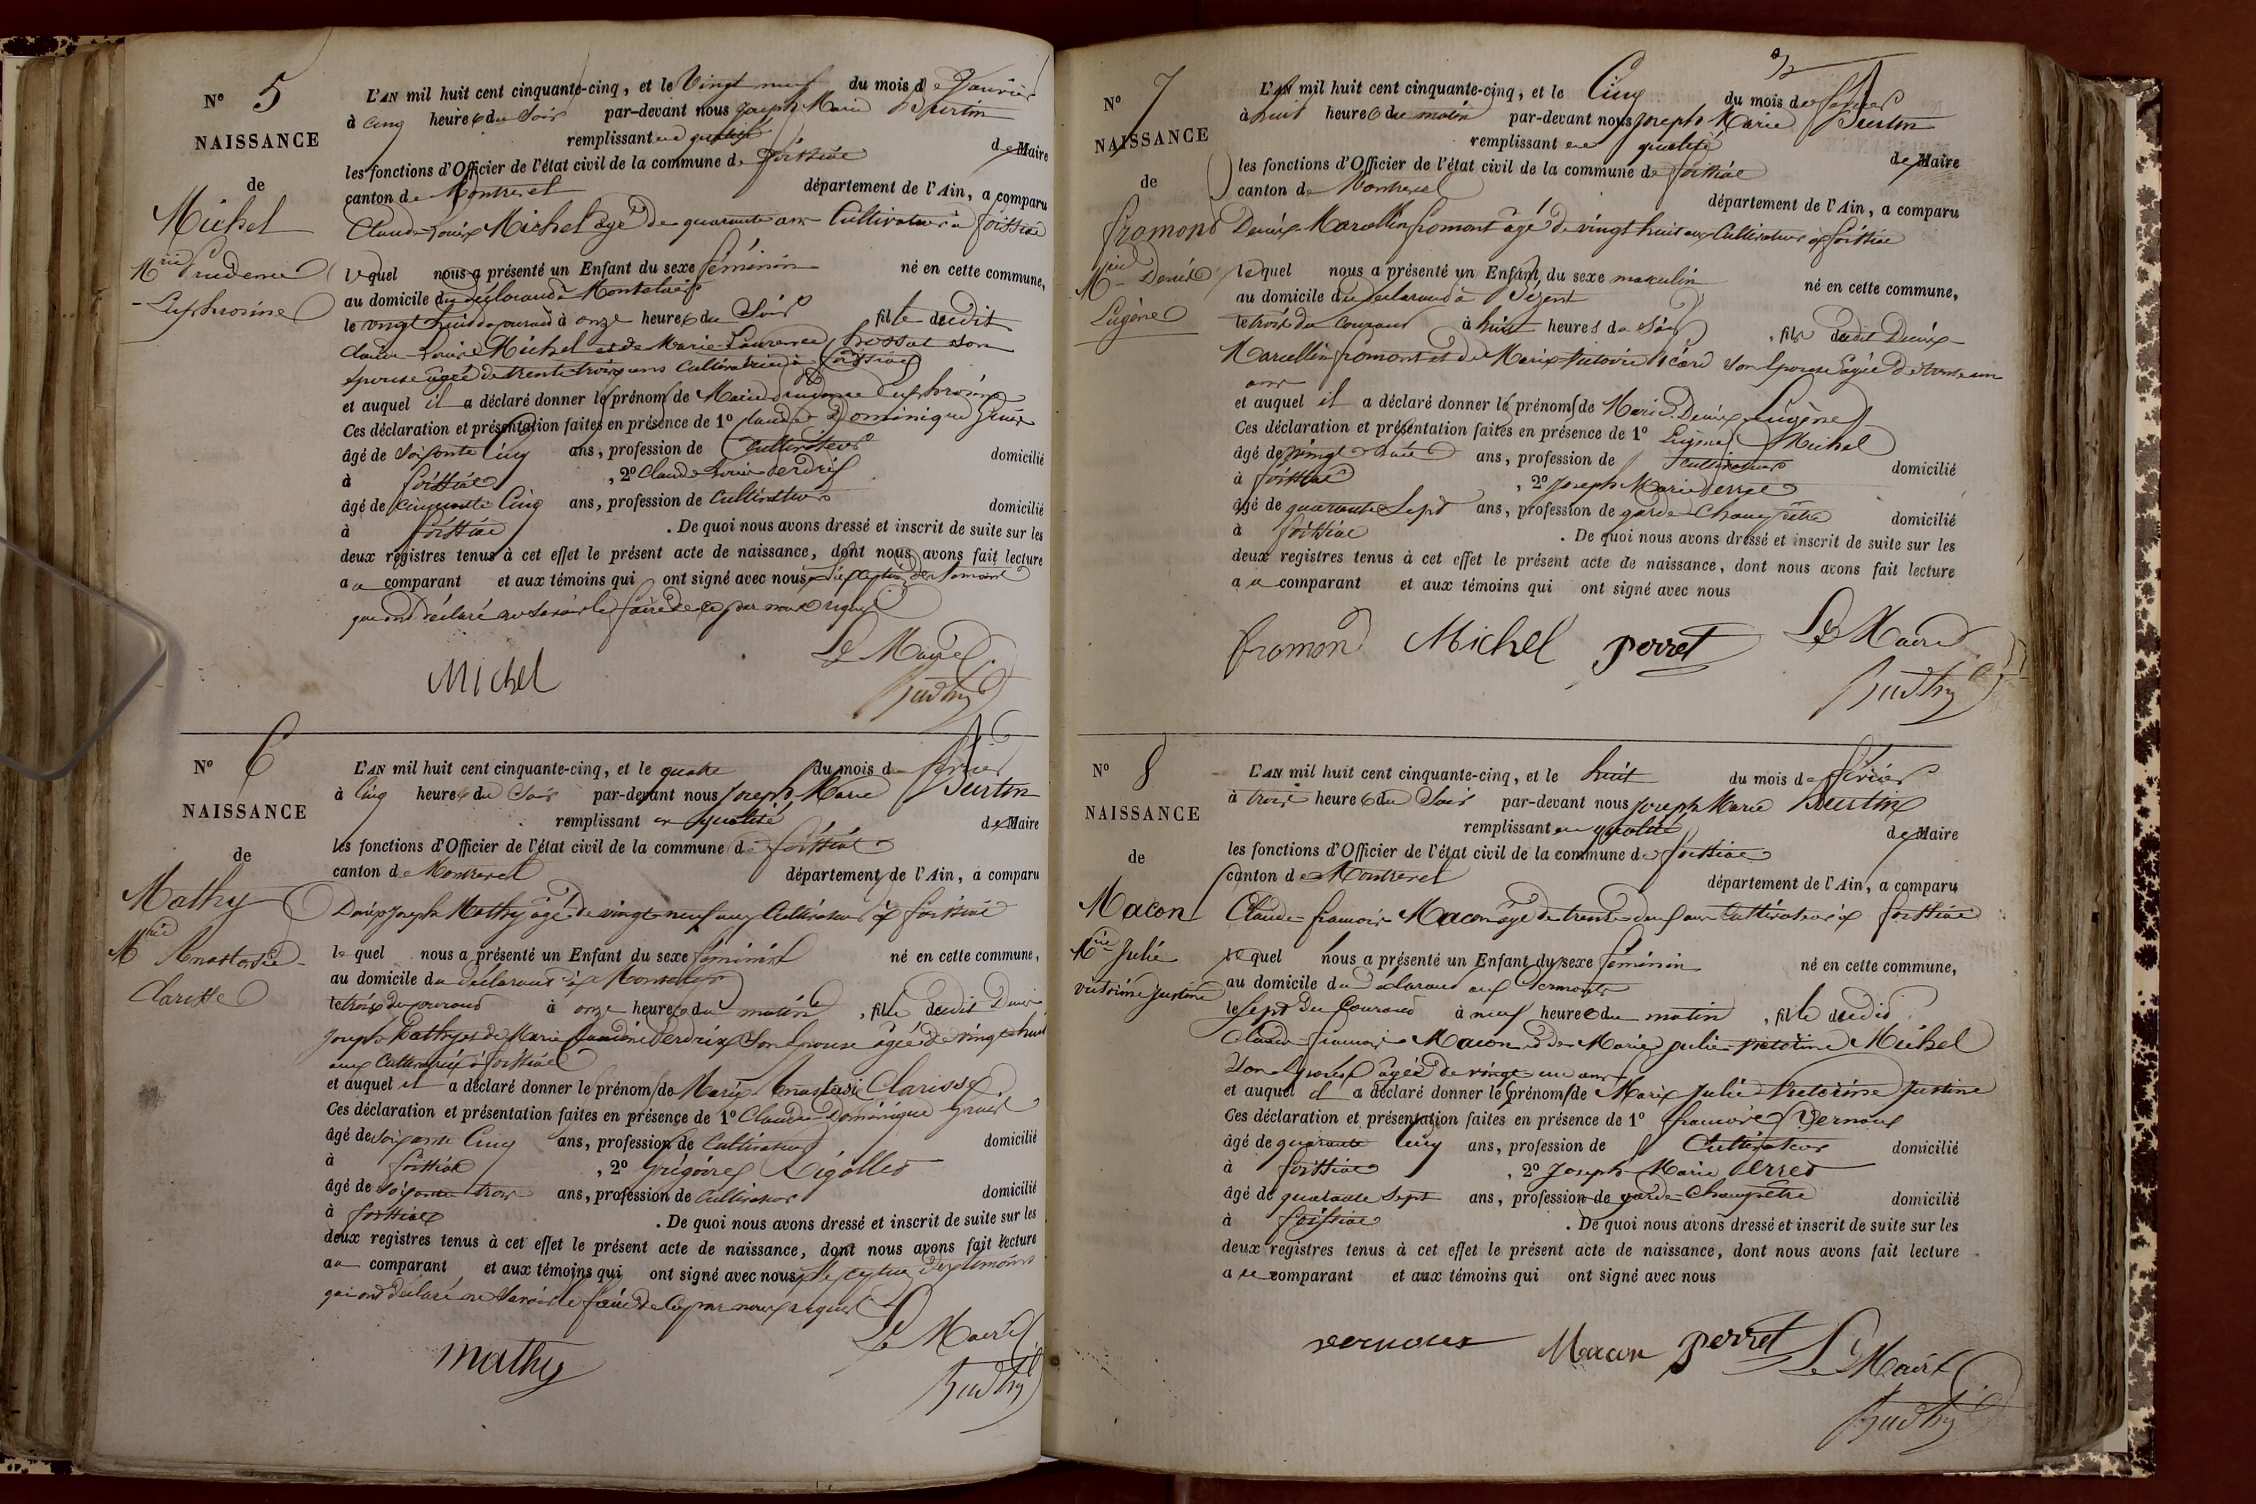 N° 5
NAISSANCE
de
Michel
Mrie Prudence
Euphrosine
L'AN mil huit cent cinquante-cinq, et le vingt neuf du mois de Janvier
à cinq heures du soir par-devant nous Joseph Marie
remplissant en qualité de Maire
les fonctions d'Officier de l'état civil de la commune de foissiat
canton de Montrevel département de l'Ain, a comparu
Claude Louis Michel âgé de quarante ans Cultivateur à foissiat
lequel nous a présenté un Enfant du sexe féminin né en cette commune,
au domicile du déclarant à
le vingt huit du courant à onze heures du soir fille dudit
Claude Louis Michel et de Marie Laurence son
épouse âgée de trente trois ans Cultivatrice à foissiat
et auquel il a déclaré donner les prénoms de Marie Prudence Euphrosine
Ces déclaration et présentation faites en présence de 1° Claude Dominique
âgé de soixante cinq ans, profession de Cultivateur domicilié
à foissiat , 2° Claude Louis
âgé de cinquante cinq ans, profession de cultivateur domicilié
à foissiat . De quoi nous avons dressé et inscrit de suite sur les
deux registres tenus à cet effet le présent acte de naissance, dont nous avons fait lecture
au comparant et aux témoins qui ont signé avec nous à l'exception des témoins
qui ont déclaré ne savoir le faire de ce par nous requis
Le Maire
Michel
N° 6
NAISSANCE
de
Mathy
Mrie Anastasie
Clarisse
L'AN mil huit cent cinquante-cinq, et le quatre du mois de février
à cinq heures du soir par-devant nous Joseph Marie
remplissant en qualité de Maire
les fonctions d'Officier de l'état civil de la commune de foissiat
canton de Montrevel département de l'Ain, a comparu
Denis Joseph Mathy âgé de vingt neuf ans Cultivateur à foissiat
lequel nous a présenté un Enfant du sexe féminin né en cette commune,
au domicile du déclarant à
le trois du courant à onze heures du matin , fille dudit Denis
Joseph Mathy et de Marie son épouse âgée de vingt huit
ans Cultivatrice à foissiat
et auquel il a déclaré donner les prénoms de Marie Anastasie Clarisse
Ces déclaration et présentation faites en présence de 1° Claude Dominique
âgé de soixante cinq ans, profession de Cultivateur domicilié
à foissiat , 2° Grégoire
âgé de soixante trois ans, profession de Cultivateur domicilié
à foissiat . De quoi nous avons dressé et inscrit de suite sur les
deux registres tenus à cet effet le présent acte de naissance, dont nous avons fait lecture
au comparant et aux témoins qui ont signé avec nous à l'exception des témoins
qui ont déclaré ne savoir le faire de ce par nous requis
Le Maire
mathy
N° 7
NAISSANCE
de
fromont
Mrie Denis
Eugène
L'AN mil huit cent cinquante-cinq, et le Cinq du mois de février
à huit heures du matin par-devant nous Joseph Marie
remplissant en qualité de Maire
les fonctions d'Officier de l'état civil de la commune de foissiat
canton de Montrevel département de l'Ain, a comparu
Denis Marcellin fromont âgé de vingt huit ans Cultivateur à foissiat
lequel nous a présenté un Enfant du sexe masculin né en cette commune,
au domicile du déclarant à
le trois du courant à huit heures du soir , fils dudit Denis
Marcellin fromont et de Marie son épouse âgée de trente un
ans
et auquel il a déclaré donner les prénoms de Marie Denis Eugène
Ces déclaration et présentation faites en présence de 1° Eugène Michel
âgé de vingt huit ans, profession de Cultivateur domicilié
à foissiat , 2° Joseph Marie Perret
âgé de quarante sept ans, profession de garde Champêtre domicilié
à foissiat . De quoi nous avons dressé et inscrit de suite sur les
deux registres tenus à cet effet le présent acte de naissance, dont nous avons fait lecture
au comparant et aux témoins qui ont signé avec nous
fromon Michel perret Le Maire
N° 8
NAISSANCE
de
Macon
Mrie Julie
victorine Justine
L'AN mil huit cent cinquante-cinq, et le huit du mois de février
à trois heures du soir par-devant nous Joseph Marie
remplissant en qualité de Maire
les fonctions d'Officier de l'état civil de la commune de foissiat
canton de Montrevel département de l'Ain, a comparu
Claude françois Macon âgé de trente deux ans Cultivateur à foissiat
lequel nous a présenté un Enfant du sexe féminin né en cette commune,
au domicile du déclarant aux
le sept du courant à neuf heures du matin , fille dudit
Claude françois Macon et de Marie Julie victorine Michel
son épouse âgée de vingt un ans
et auquel il a déclaré donner les prénoms de Marie Julie Victorine Justine
Ces déclaration et présentation faites en présence de 1° françois Vernoux
âgé de quarante cinq ans, profession de Cultivateur domicilié
à foissiat , 2° Joseph Marie Perret
âgé de quarante sept ans, profession de garde Champêtre domicilié
à foissiat . De quoi nous avons dressé et inscrit de suite sur les
deux registres tenus à cet effet le présent acte de naissance, dont nous avons fait lecture
au comparant et aux témoins qui ont signé avec nous
vernoux Macon perret Le Maire